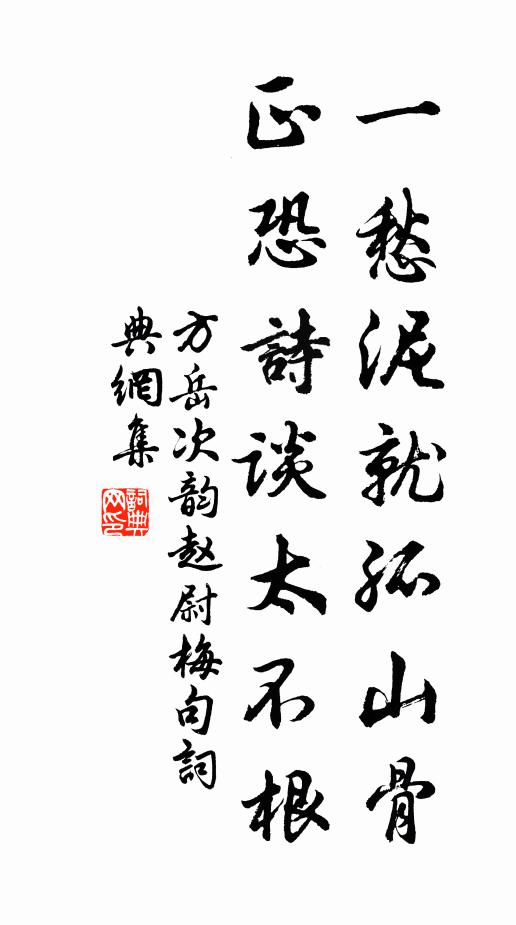 一愁泥就孤山骨
正恐詩談太不根
方岳次韵赵尉梅句詞
典網集
詞典
网印